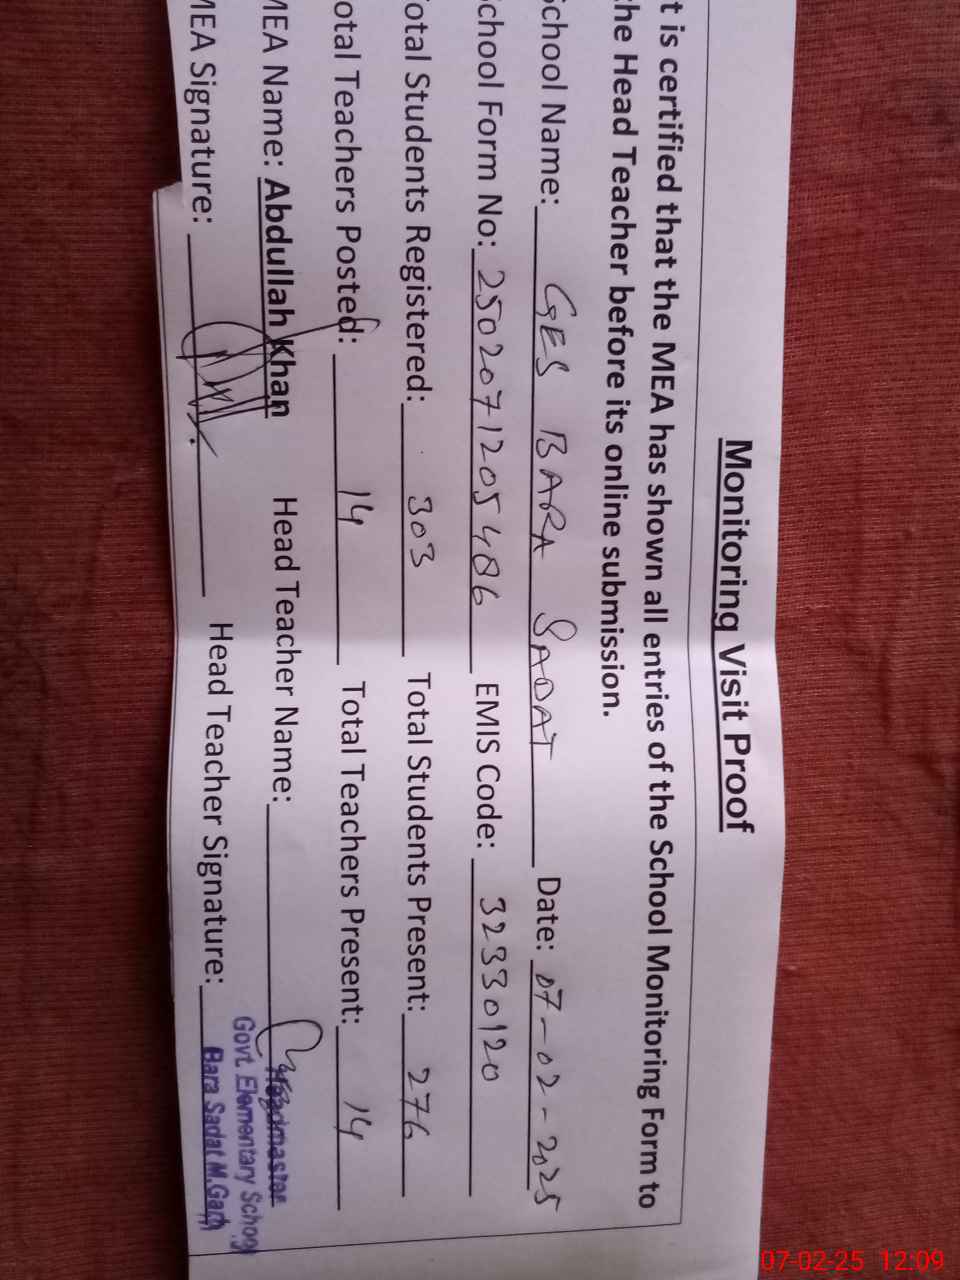 Monitoring Visit Proof
t is certified that the MEA has shown all entries of the School Monitoring Form to
the Head Teacher before its online submission.
School Name: GES BARA SADAT Date: 07-02-2025
School Form No: 2502071205486 EMIS Code: 32330120
Total Students Registered: 303 Total Students Present: 276
otal Teachers Posted: 14 Total Teachers Present: 14
MEA Name: Abdullah Khan Head Teacher Name:
MEA Signature: Head Teacher Signature:
Headmaster
Govt. Elementary School
Bara Sadat M.Garh
07-02-25 12:09